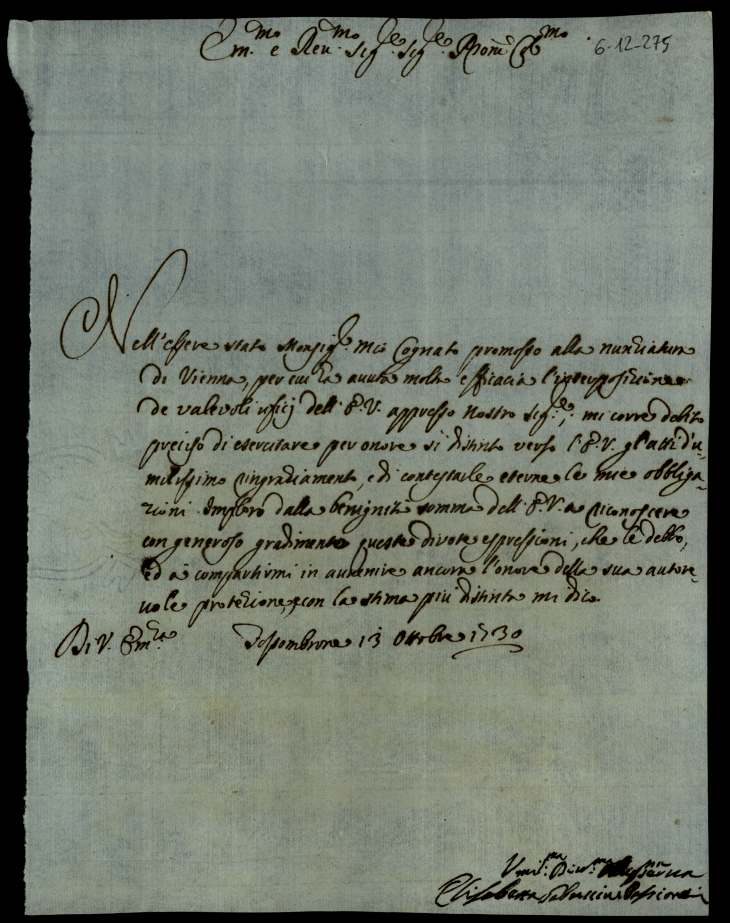 Em.mo e Reu.mo Sig.re Sig.re Pron̄ Co͞l.mo
6-12-275
Nell'essere stato Monsig.re Mio Cognato promosso alla nunziatura
di Vienna, per cui hà auuta molta efficacia l'interposizione
de valevoli ufficij dell'E.V. appresso Nostro Sig.re, mi corre debito
preciso di esercitare per onore si distinto verso l'E.V. gl'atti d'u-
milissimo ringraziamento, e di contestarle eterne le mie obbliga-
zioni. Imploro dalla benignità somma dell'E.V. a riconoscere
con generoso gradimento queste divote espressioni, che le debbo,
ed à compartirmi in auuenire ancora l'onore della sua autore-
uole protezione, e con la stima più distinta mi dico
Di V. Em.za Fossombrone 13 Ottobre 1730
Vmil.ma Diu.ma Serua
Elisabetta Passionei